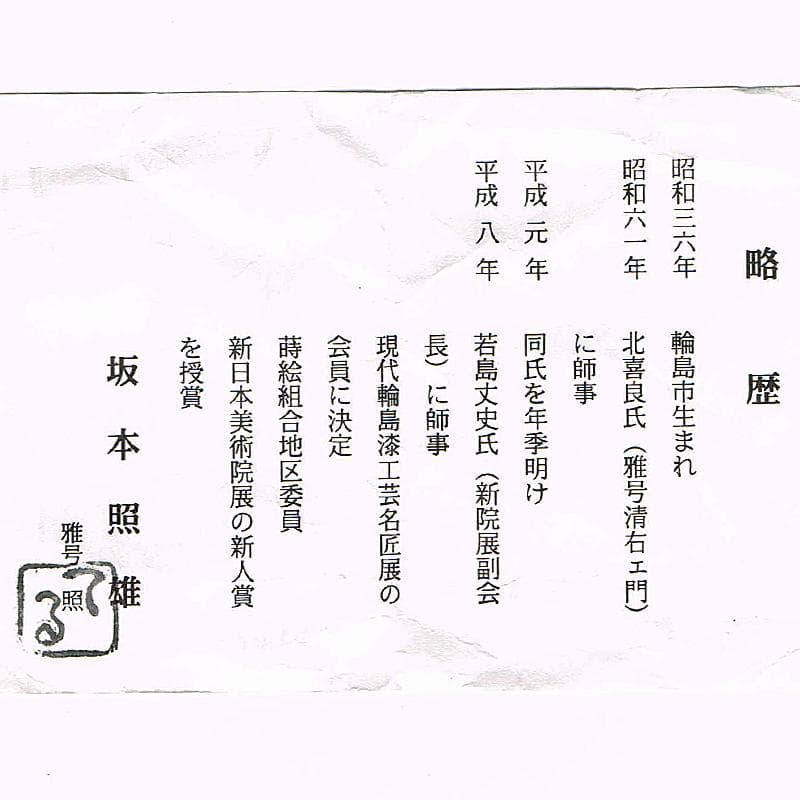 略歴
昭和三六年 輪島市生まれ
昭和六一年 北喜良氏（雅号清右ェ門）
に師事
平成元年 同氏を年季明け
平成八年 若島丈史氏（新院展副会
長）に師事
現代輪島漆工芸名匠展の
会員に決定
蒔絵組合地区委員
新日本美術院展の新人賞
を授賞
坂本照雄
雅号 照
てる